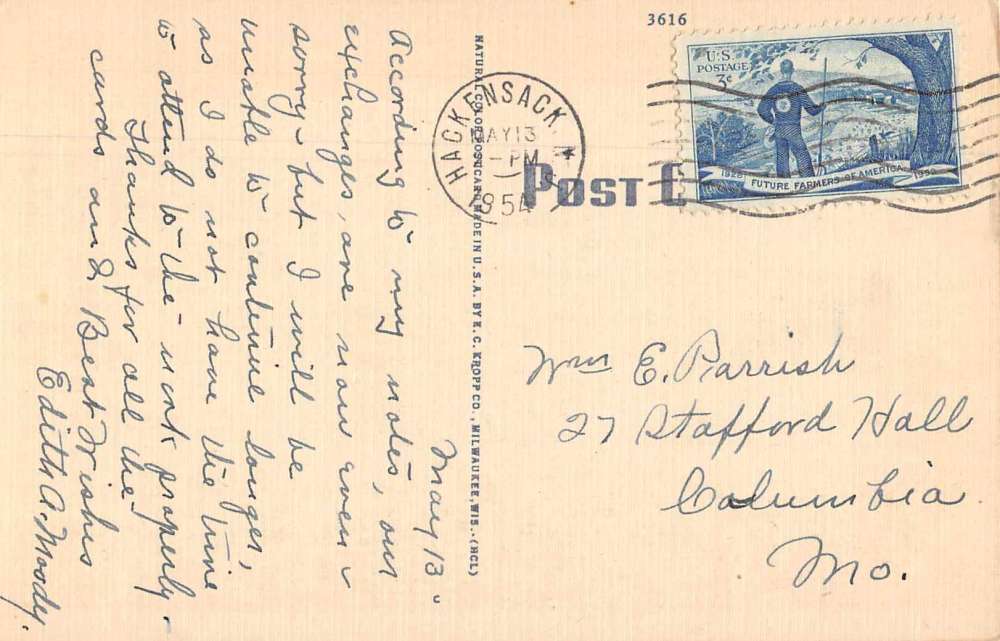 3616
U.S.
POSTAGE
3¢
1928 FUTURE FARMERS OF AMERICA 1953
HACKENSACK,
MAY 13
-PM
1954
POST C
NATURAL COLOR POST CARD MADE IN U.S.A. BY E. C. KROPP CO., MILWAUKEE, WIS. (HCL)
May 13-
According to my notes, our
exchanges, are now even -
sorry - but I will be
unable to continue longer,
as I do not have the time
to attend to the work properly -
Thanks for all the
cards and Best Wishes
Edith A. Moody.
Wm E. Parrish
27 Stafford Hall
Columbia
Mo.